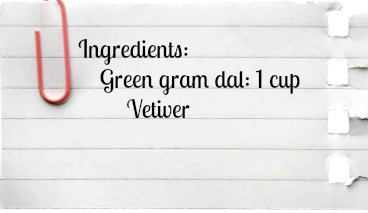 Ingredients:
Green gram dal: 1 cup
Vetiver